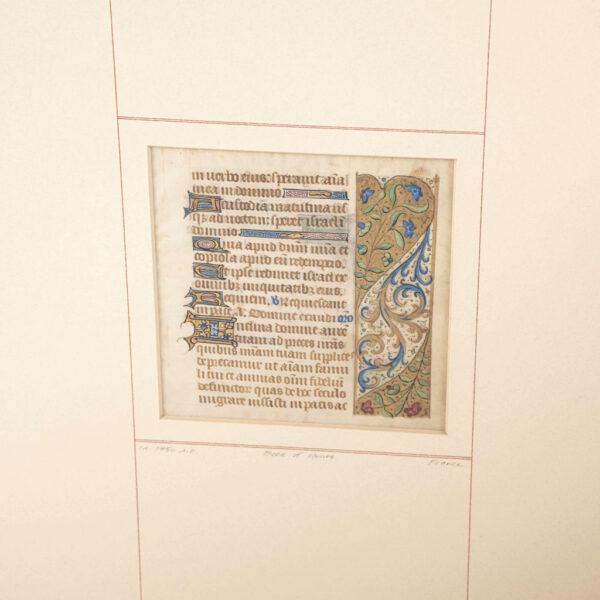 in verbo eius: speravit aīa
mea in domino
A custodia matutina us
q̄ ad noctem: speret israel ī
domino
Quia apud dn̄m mīa et
copiosa apud eū redemptio.
Et ipse redimet israel ex
omnibꝰ iniquitatibꝰ eius.
Requiem. ℣. Requiescant
in pace. A. Domine exaudi orō
Inclina domine aurē
tuam ad preces n̄r̄as
quibus mīam tuam supplice
deprecamur ut aīam famu
li tui et animas oīm fideliū
defunctor quas de hoc seculo
migrare iussisti in pacis ac
ca. 1450 A.D. Book of Hours France